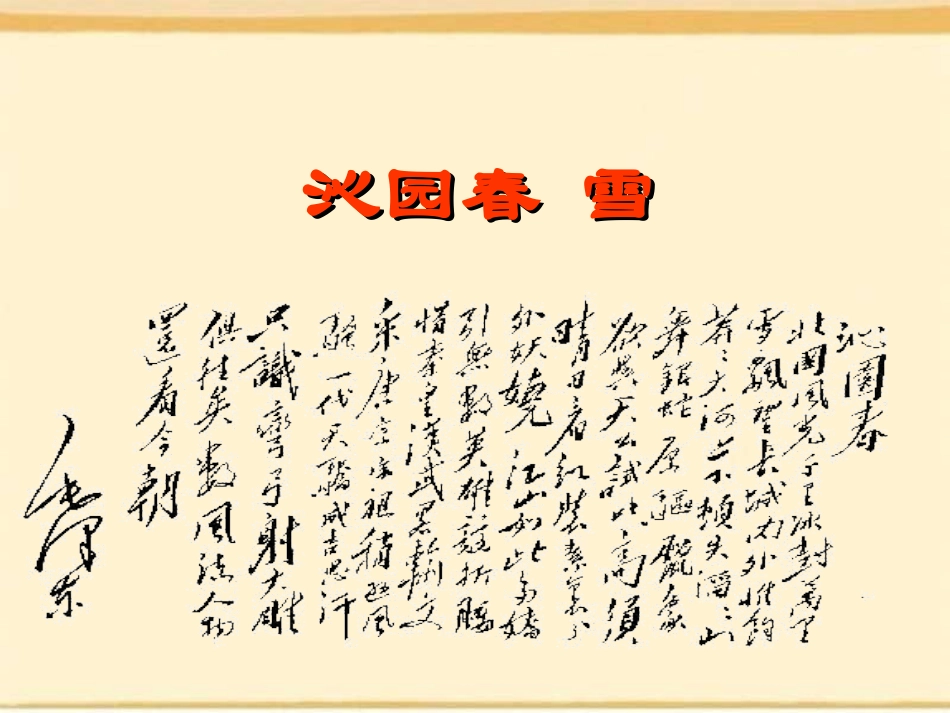 沁园春 雪
沁園春
北國風光千里冰封萬里
雪飄望長城内外惟餘
莽〻大河上下頓失滔〻山
舞銀蛇原驅臘象
欲與天公試比高須
晴日看紅裝素裹分
外妖嬈江山如此多嬌
引無數英雄競折腰
惜秦皇漢武畧輸文
采唐宗宋祖稍遜風
騷一代天驕成吉思汗
只識彎弓射大雕
俱往矣數風流人物
還看今朝
毛澤東